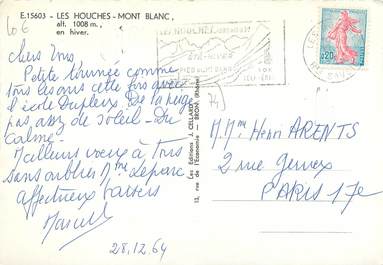 E.15603 - LES HOUCHES - MONT BLANC,
alt. 1008 m.,
en hiver.
606
chers Tous
Petite tournée comme
tous les ans cette fois avec
l'école Dupleix. De la neige
pas assez de soleil - Du
Calme -
Meilleurs voeux à Tous
Sans oublier Mme Leparc
affectueux baisers
Marcel
28.12.64
Les Editions J. CELLARD
15, rue de l'Economie - BRON (Rhône)
LES HOUCHES
ÉTÉ-HIVER
PIED DU MT BLANC
74
0,20
M. Mme Henri ARENTS
2 rue Gervex
PARIS 17e